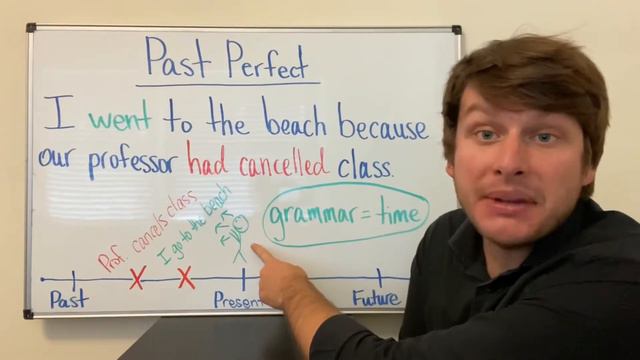 Past Perfect
I went to the beach because
our professor had cancelled class.
Prof. cancels class
I go to the beach
grammar = time
Past
Present
Future